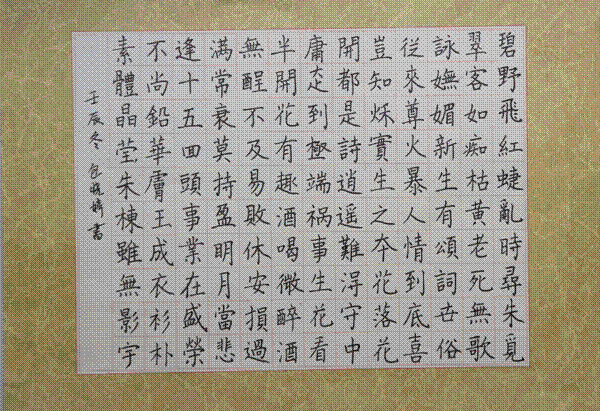 碧野飛紅蜨亂時尋朱覓
翠客如痴枯黃老死無歌
詠嫵媚新生有頌詞世俗
從來尊火暴人情到底喜
豈知穌實生之本花落花
開都是詩逍遥難淂守中
庸走到極端祸事生花看
半開花有趣酒喝微醉酒
無酲不及易敗休安損過
满常衰莫持盈明月當悲
逢十五回頭事業在盛榮
不尚鉛華膚玉成衣衫朴
素體晶莹朱棟雖無影宇
壬辰冬 包 書